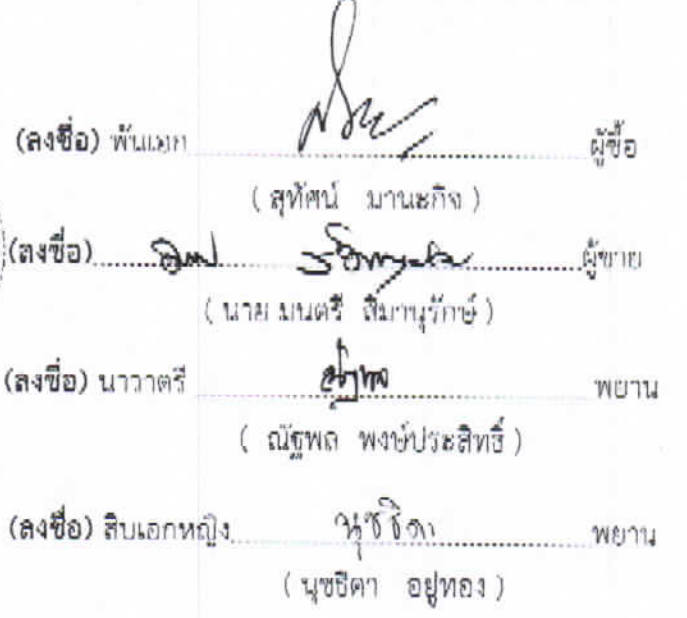 (ลงชื่อ) พันเอก ผู้ซื้อ
( สุทัศน์ มานะกิจ )
(ลงชื่อ) ผู้ขาย
( นาย มนตรี สีมานุรักษ์ )
(ลงชื่อ) นาวาตรี พยาน
( ณัฐพล พงษ์ประสิทธิ์ )
(ลงชื่อ) สิบเอกหญิง นุชธิดา พยาน
( นุชธิดา อยู่ทอง )